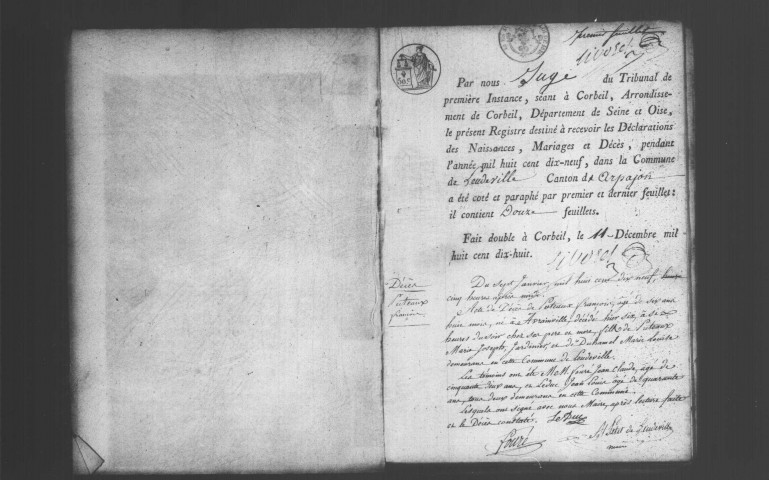 premier feuillet
Par nous Juge du Tribunal de
première Instance, séant à Corbeil, Arrondisse-
ment de Corbeil, Département de Seine et Oise,
le présent Registre destiné à recevoir les Déclarations
des Naissances, Mariages et Décès, pendant
l'année mil huit cent dix-neuf, dans la Commune
de Leudeville Canton d'Arpajon
a été coté et paraphé par premier et dernier feuillet:
il contient Douze feuillets.
Fait double à Corbeil, le 11 Décembre mil
huit cent dix-huit.
Décès
Puteaux
françois
Du Sept Janvier, mil huit cent dix neuf,
cinq heures après midi.
Acte de Décès de Puteaux françois, âgé de six ans
huit mois, né à Avrainville, décédé hier six, à six
heures du soir chez ses pere et mere, fils de Puteaux
Marie Josephe, Jardinier, et de Duhamel Marie Louise
demeurans en cette Commune de Leudeville.
Les témoins ont été MM. fouré Jean Claude, âgé de
cinquante deux ans, et Leduc Jean Louis âgé de quarante
ans, tous deux demeurans en cette Commune.
Lesquels ont signé avec nous Maire, après lecture faite
et le Décès constaté. Le Duc
fouré de Leudeville
maire